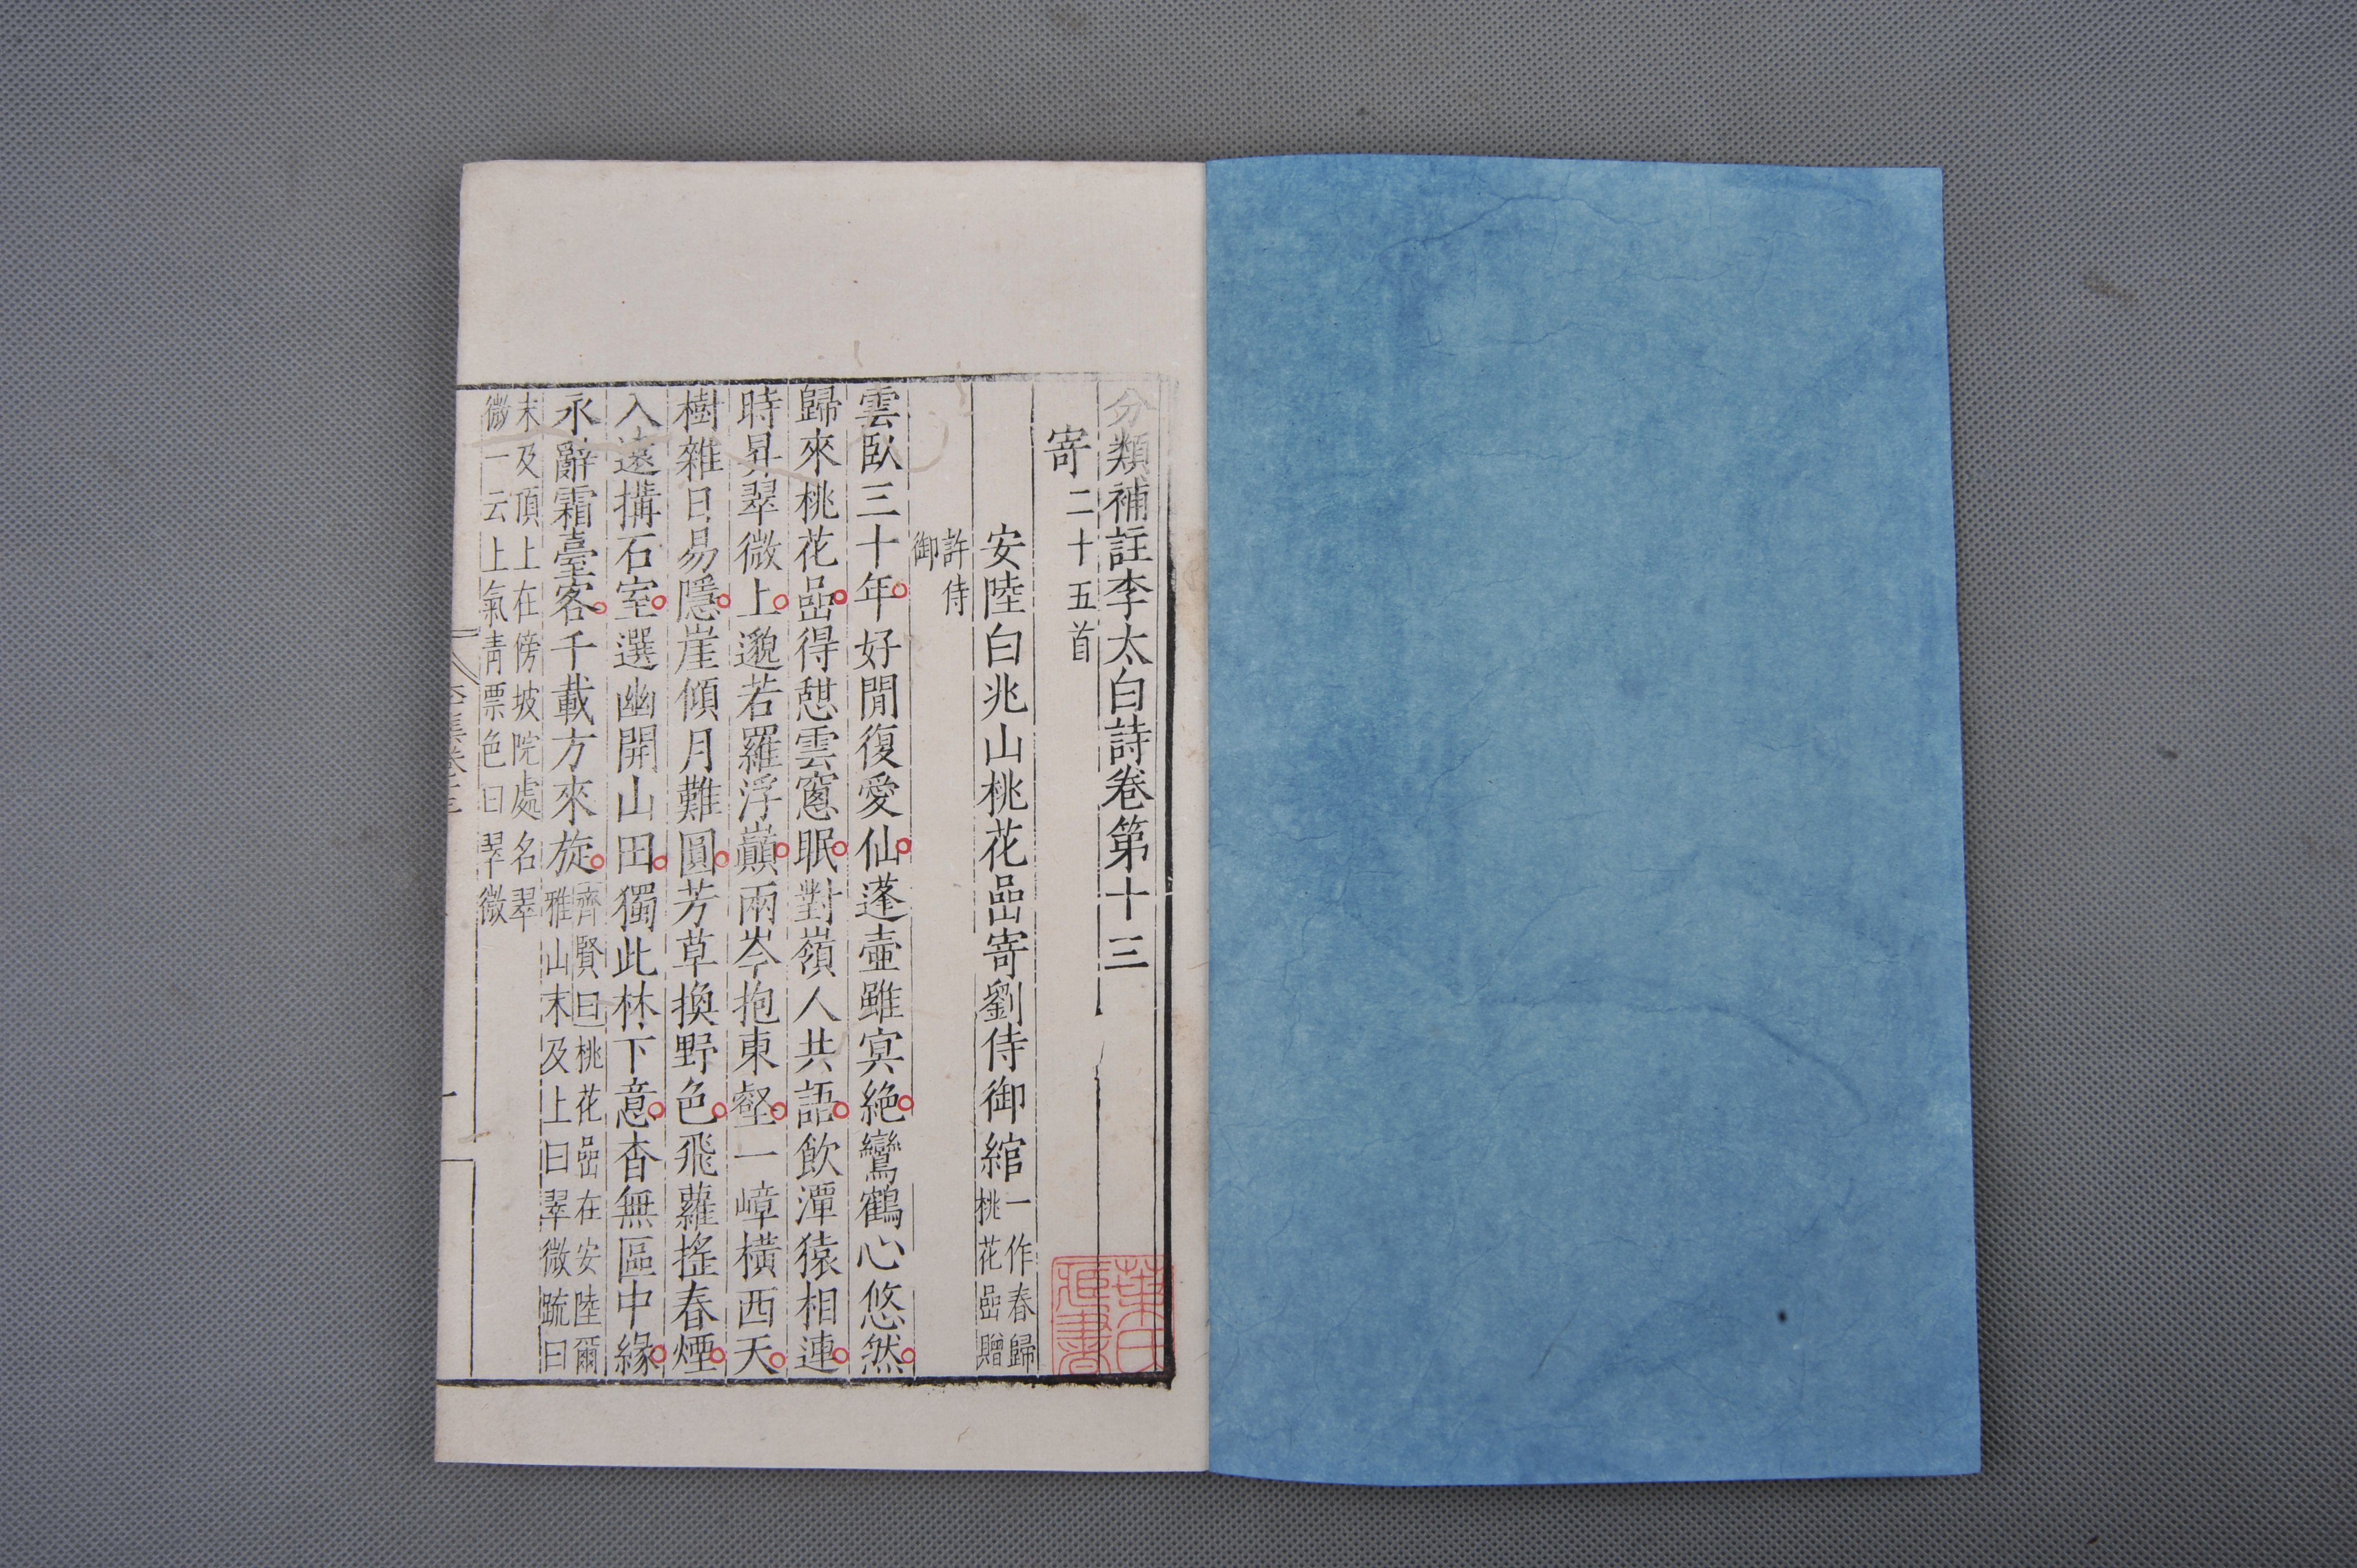 分類補註李太白詩卷第十三
寄二十五首
安陸白兆山桃花嵒寄劉侍御綰
一作春歸
桃花嵒贈
許侍
御
雲臥三十年好閒復愛仙蓬壺雖冥絶鸞鶴心悠然
歸來桃花嵒得憇雲窻眠對嶺人共語飲潭猿相連
時昇翠微上邈若羅浮巔兩岑抱東壑一嶂橫西天
樹雜日易隱崖傾月難圓芳草換野色飛蘿搖春煙
入遠搆石室選幽開山田獨此林下意杳無區中緣
永辭霜臺客千載方來旋
齊賢曰桃花嵒在安陸爾
雅山末及上曰翠微䟽曰
末及頂上在傍坡陁處名翠
微一云上氣青票色曰翠微
葉氏
藏書